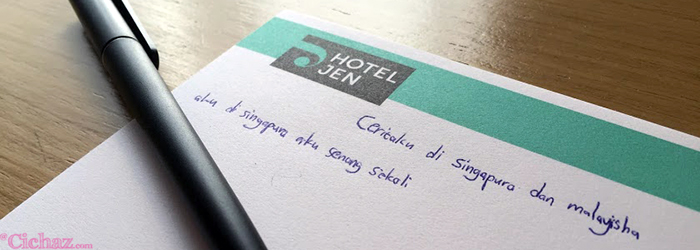 HOTEL
JEN
Ceritaku di singapura dan malayisha
aku di singapura aku senang sekali
©Cichaz.com